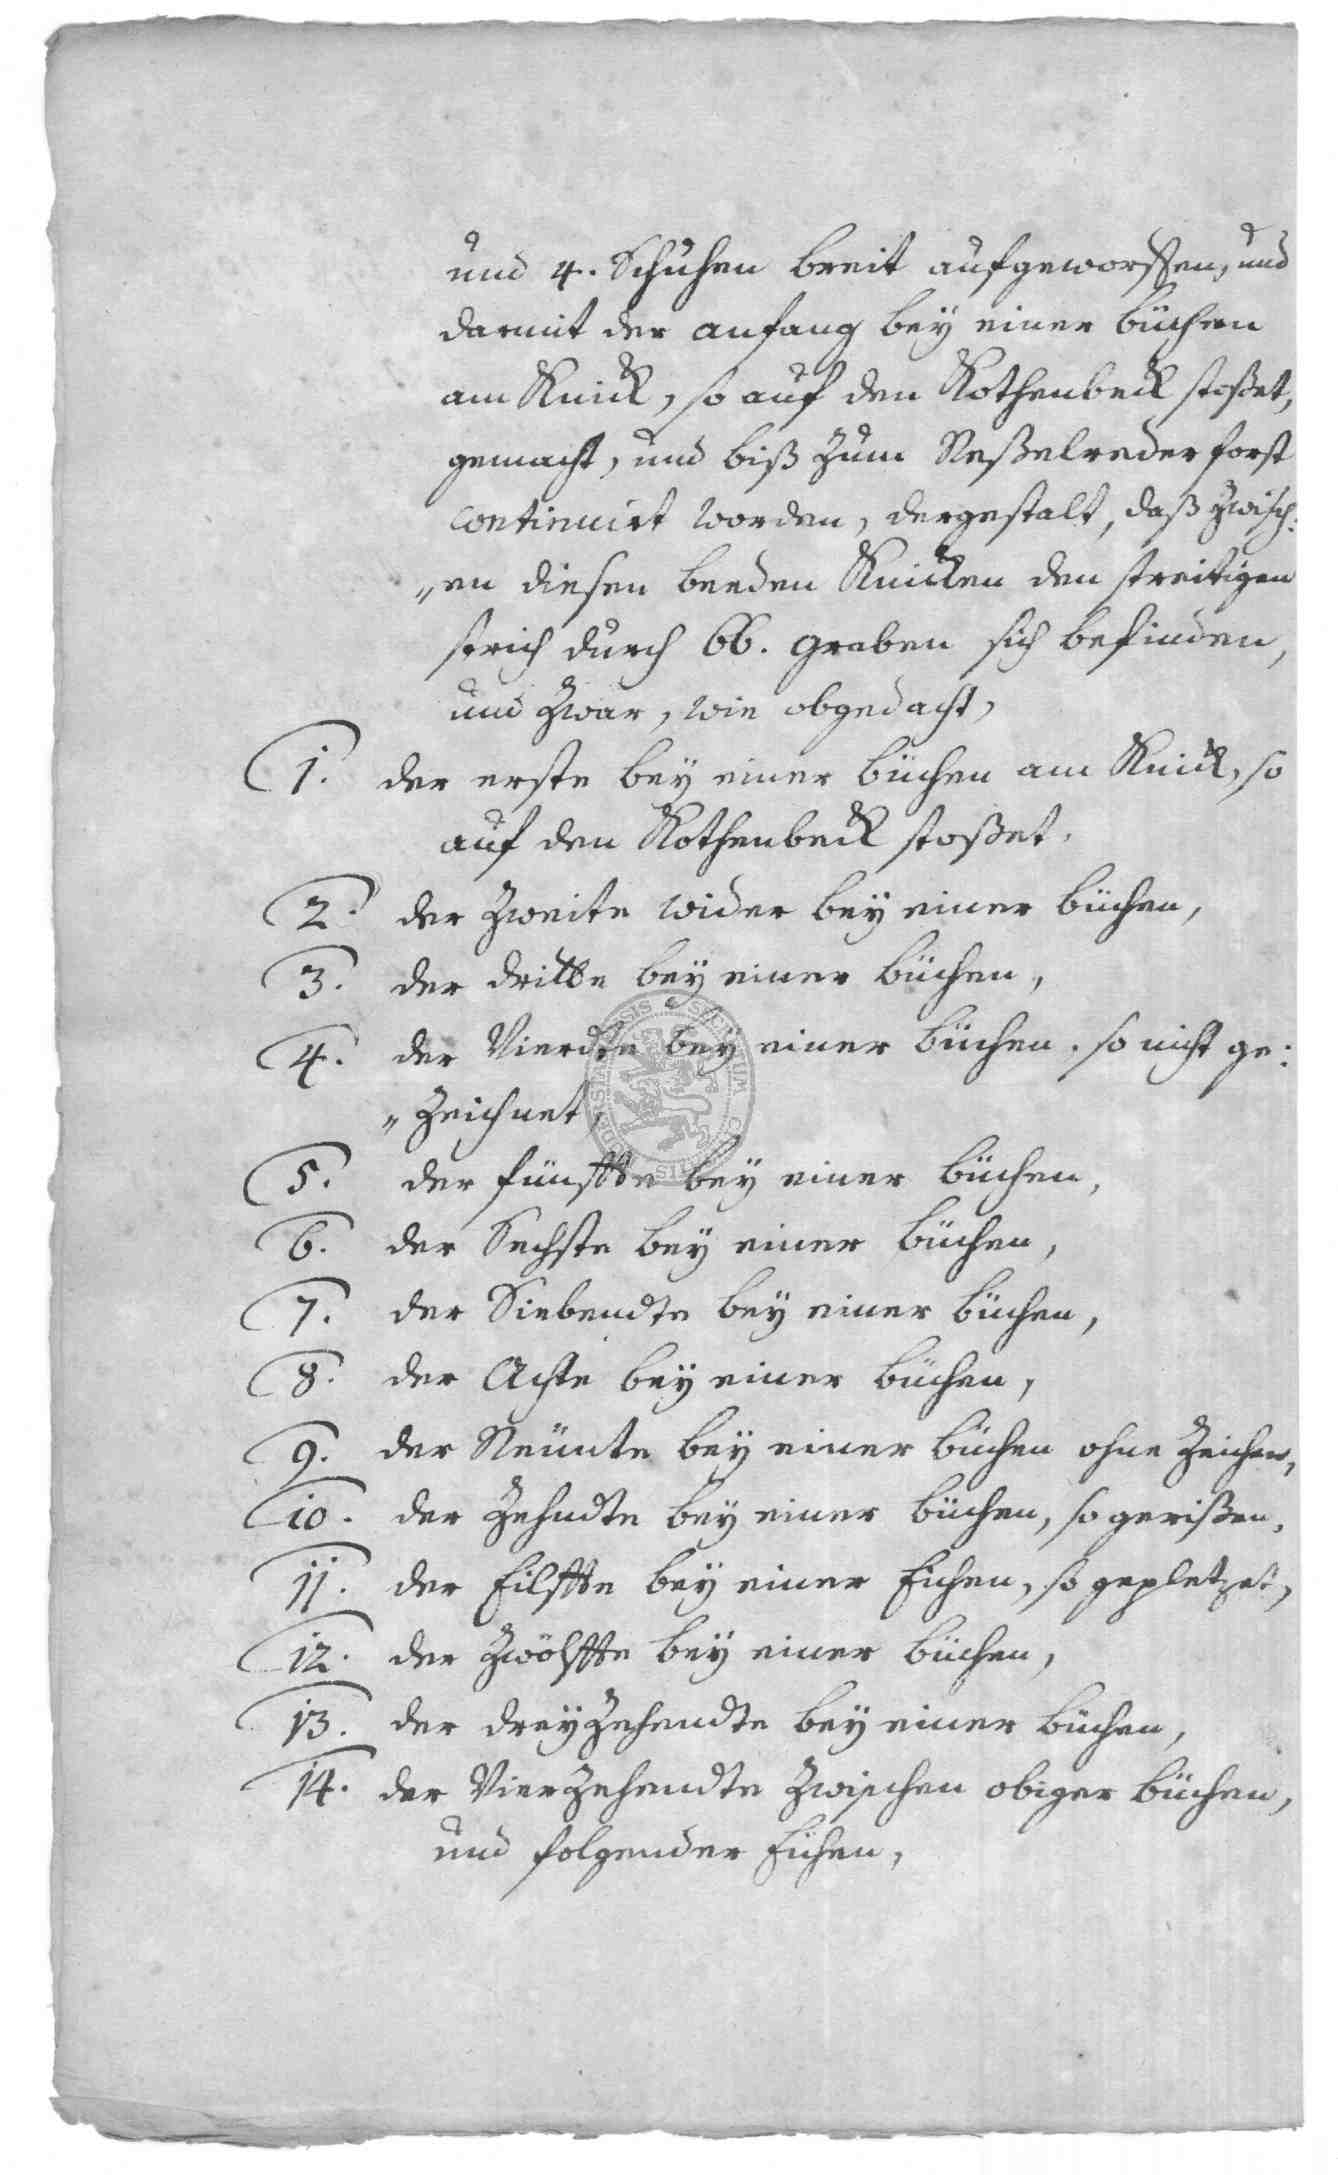 und 4. Schuhen breit aufgeworffen, und
darmit der anfang bey einer büchen
am Knick, so auf den Rothenbeck stoßet,
gemacht, und biß zum Neßelreder forst
continuirt worden, dergestalt, daß zwisch:
„en diesen beeden Knicken den streitigen
strich durch 66. graben sich befinden,
und zwar, wie obgedacht,
1. der erste bey einer büchen am Knick, so
auf den Rothenbeck stoßet,
2. der Zweite wider bey einer büchen,
3. der dritte bey einer büchen,
4. der Vierdte bey einer büchen, so nicht ge:
„zeichnet,
5. der fünffte bey einer büchen,
6. der Sechste bey einer büchen,
7. der Siebendte bey einer büchen,
8. der Achte bey einer büchen,
9. der Neünte bey einer büchen ohne Zeichen,
10. der Zehndte bey einer büchen, so gerißen,
11. der Eilffte bey einer Eichen, so gepletzet,
12. der Zwölffte bey einer büchen,
13. der dreyzehendte bey einer büchen,
14. der Vierzehendte zwischen obiger büchen,
und folgender Eichen,